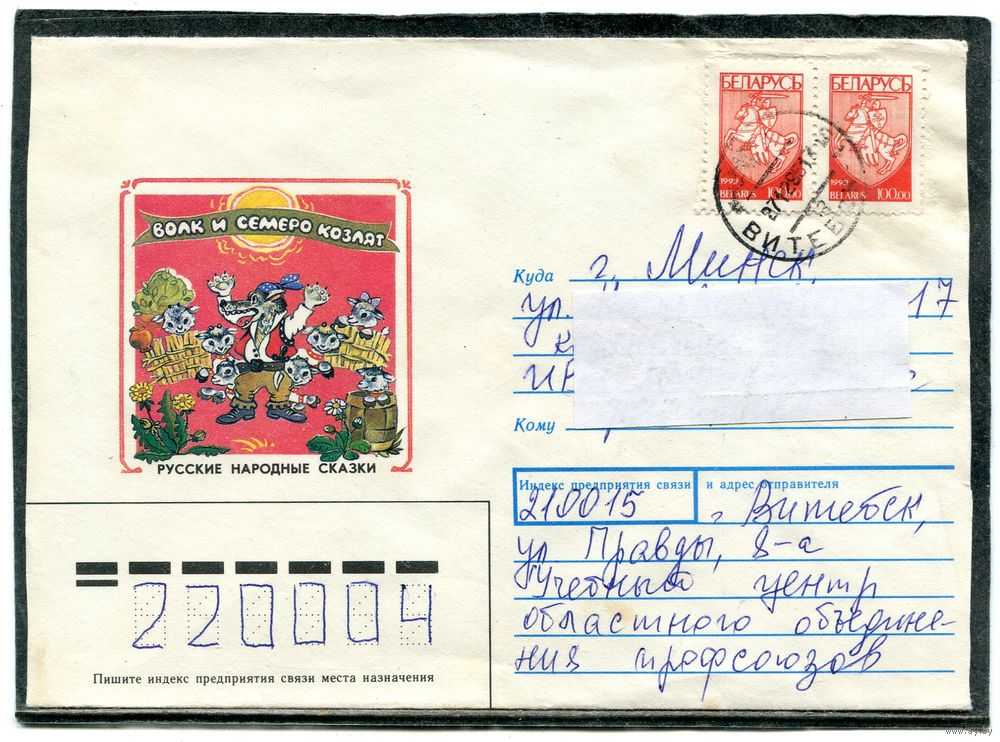 БЕЛАРУСЬ БЕЛАРУСЬ
1993 100.00 1993 100.00
BELARUS BELARUS
ВИТЕБ
ВОЛК И СЕМЕРО КОЗЛЯТ
РУССКИЕ НАРОДНЫЕ СКАЗКИ
Куда г. Минск,
ул. 17
Кому
Индекс предприятия связи и адрес отправителя
210015 г. Витебск,
ул Правды, 8-а
Учебный центр
областного объедине-
ния профсоюзов
220004
Пишите индекс предприятия связи места назначения